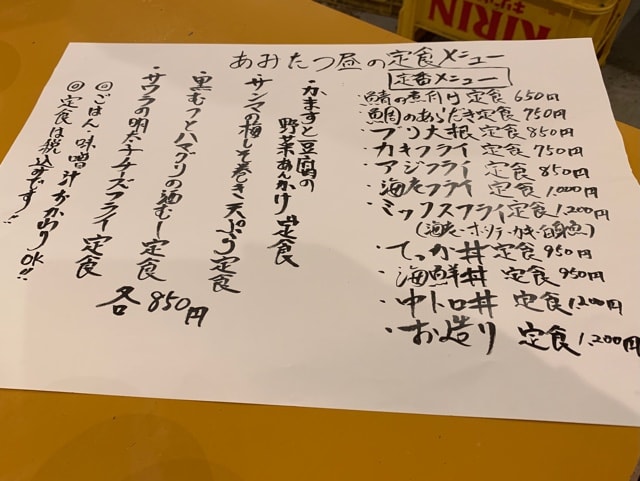 あみたつ昼の定食メニュー
定番メニュー
鯖の煮付け定食 650円
鯛のあらだき定食 750円
・ブリ大根定食 850円
・カキフライ定食 750円
・アジフライ定食 850円
・海老フライ定食 1,000円
・ミックスフライ定食 1,200円
(海老・ホタテ・カキ・白身魚)
・てっか丼定食 950円
・海鮮丼定食 950円
・中トロ丼定食 1,200円
・お造り定食 1,200円
・かますと豆腐の
野菜あんかけ定食
・サンマの梅しそ巻き天ぷら定食
・黒むつとハマグリの酒むし定食
・サワラの明太チーズフライ定食
各850円
◎ごはん・味噌汁おかわりOK!!
◎定食は税込みです!!
KIRIN